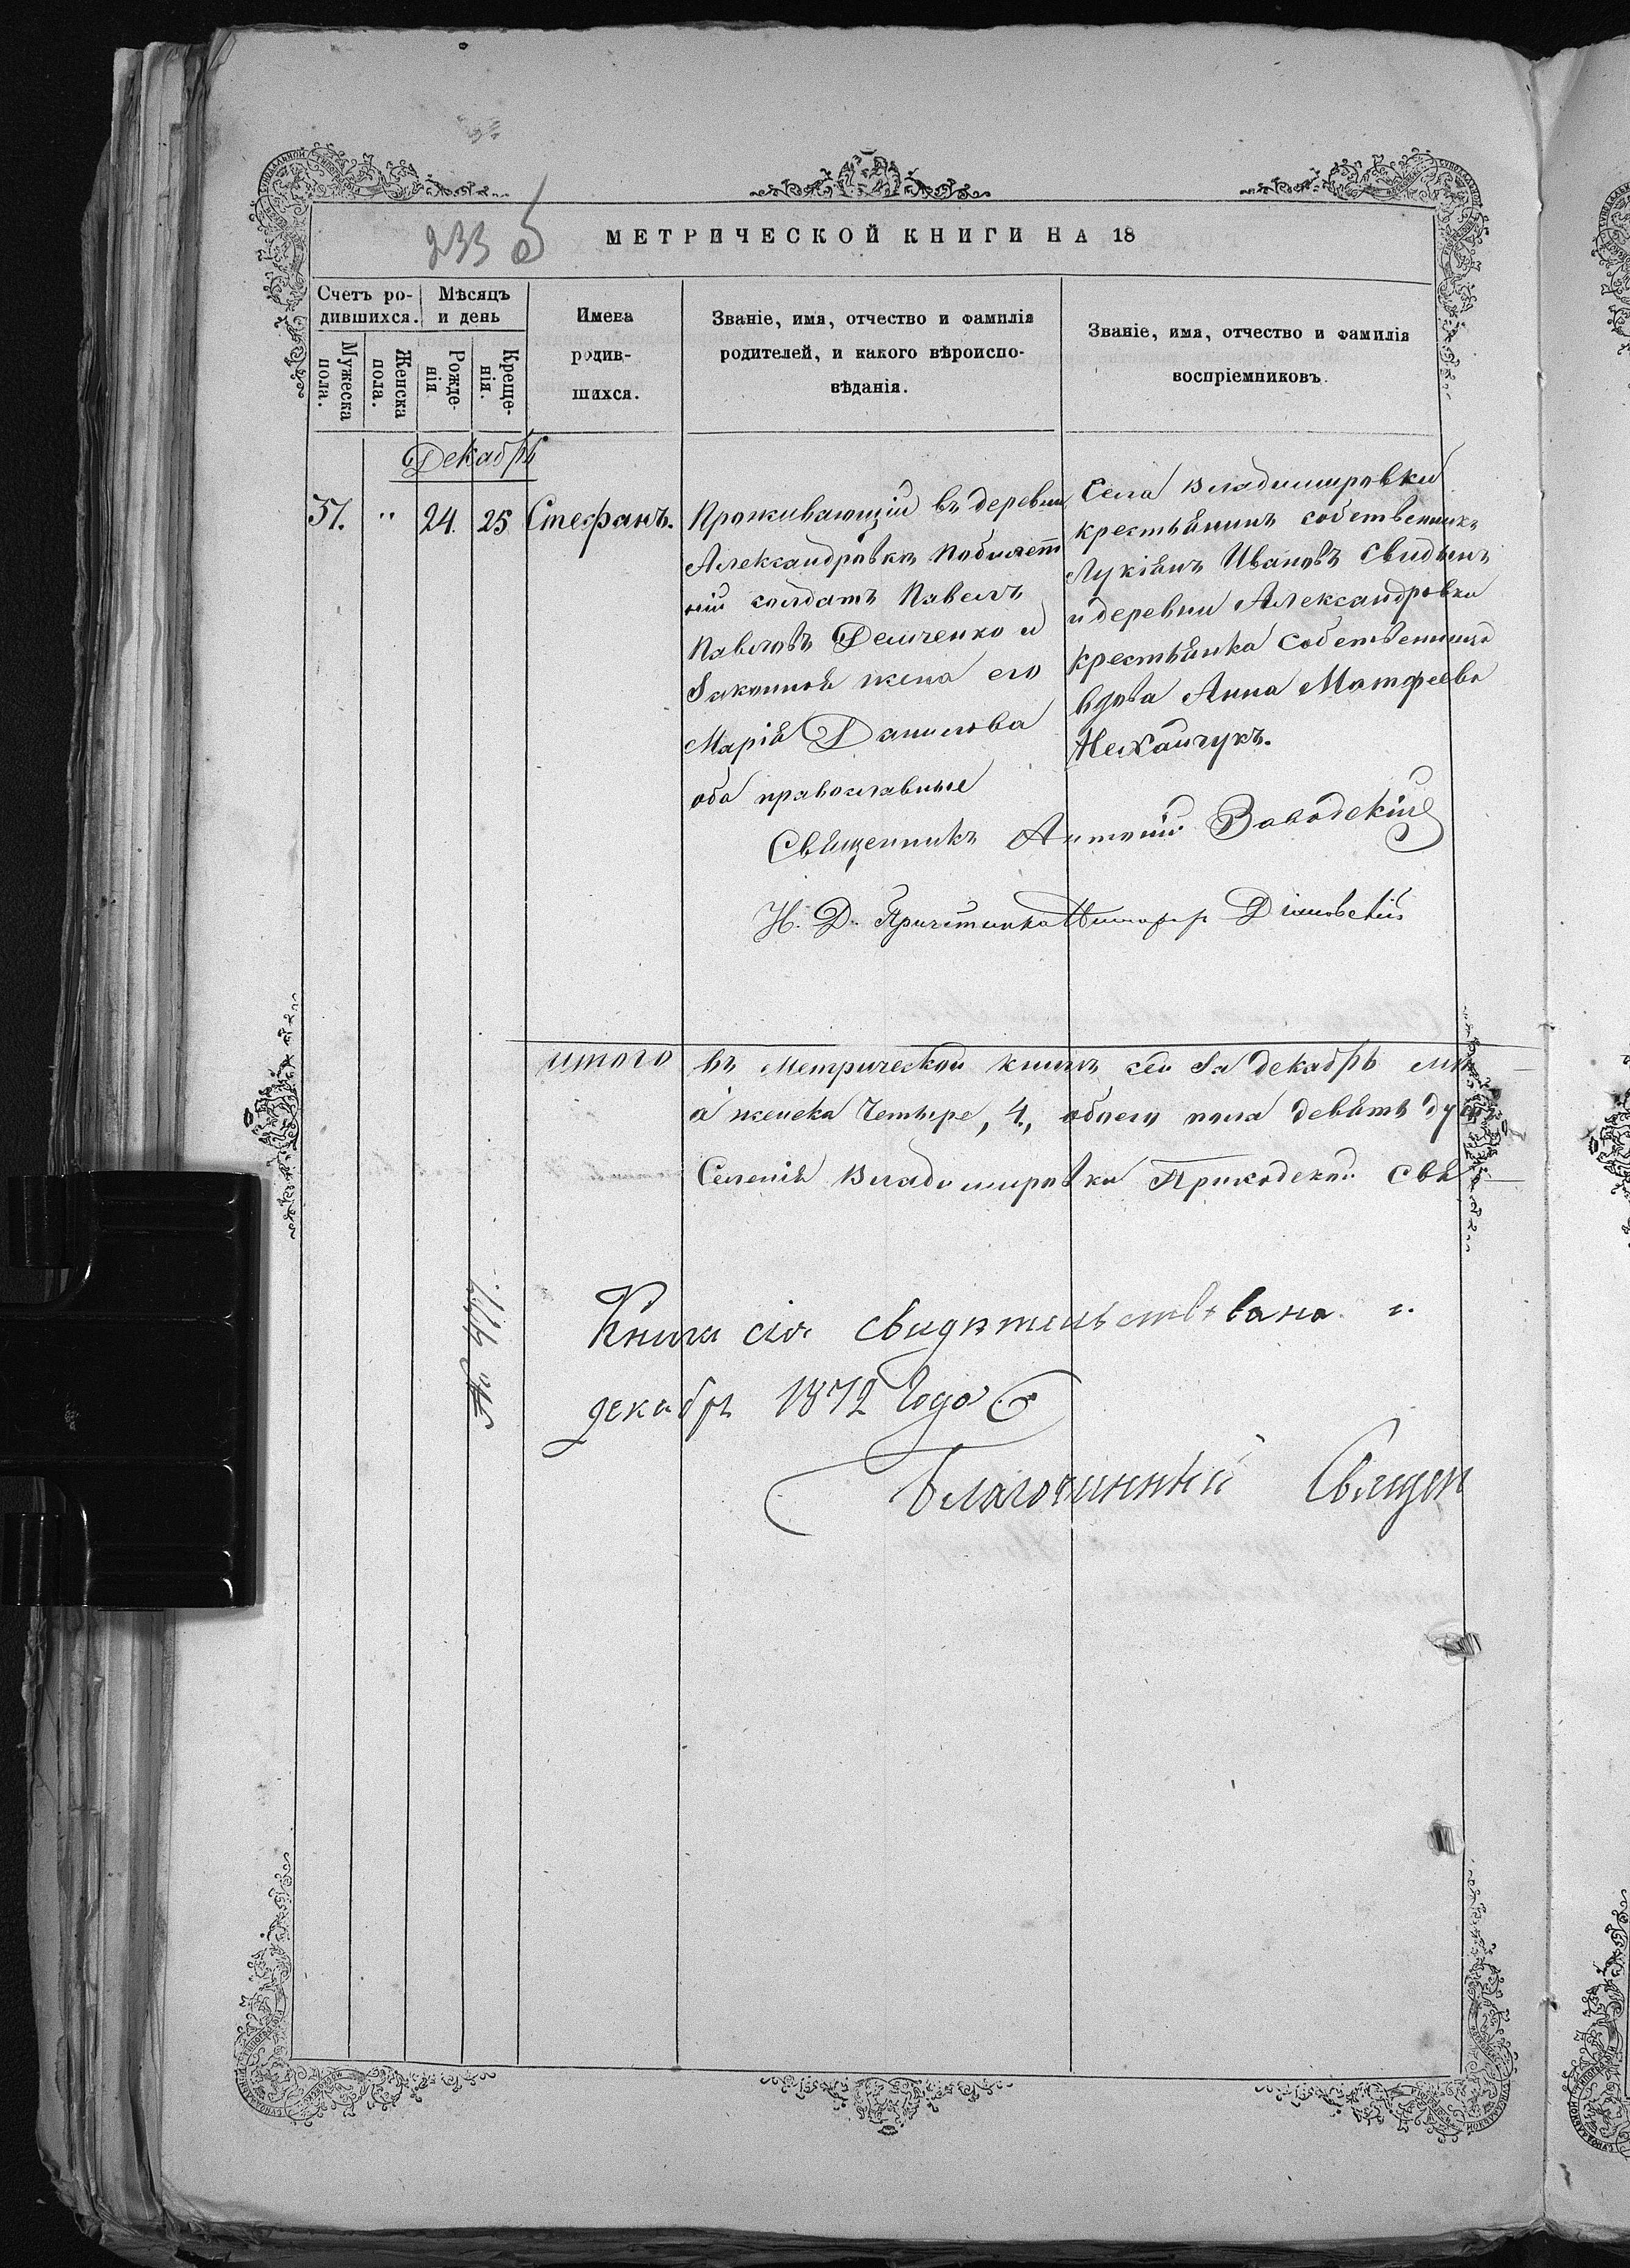 233 об
МЕТРИЧЕСКОЙ КНИГИ НА 18
Счетъ ро-
дившихся.
Мужеска
пола.
Женска
пола.
Мѣсяцъ
и день
Рожде-
нія
Креще-
нія.
Имена
родив-
шихся.
Званіе, имя, отчество и фамилія
родителей, и какого вѣроиспо-
вѣданія.
Званіе, имя, отчество и фамилія
воспріемниковъ.
Декабрь
37. " 24. 25 Стефанъ.
Проживающій въ деревни
Александровкѣ побилет
ній солдатъ Павелъ
Павловъ Демченко и
Законноя жена его
Марія Данилова
оба православные
Села Владимировки
крестьянинъ собственникъ
Лукіянъ Ивановъ
и деревни Александровки
крестьянка собственница
вдова Анна Матфеева
Михайчукъ.
Священникъ Антоній Заводскій
И. Д. Причетника Діановскій
итого въ метрической книгѣ сей За декабрь
а женска Четыре, 4, обоего пола девять ду
Селенія Владимировки Приходской Свя
Книга сія свидѣтельствована
декабря 1872 Года
Благочинный Священ